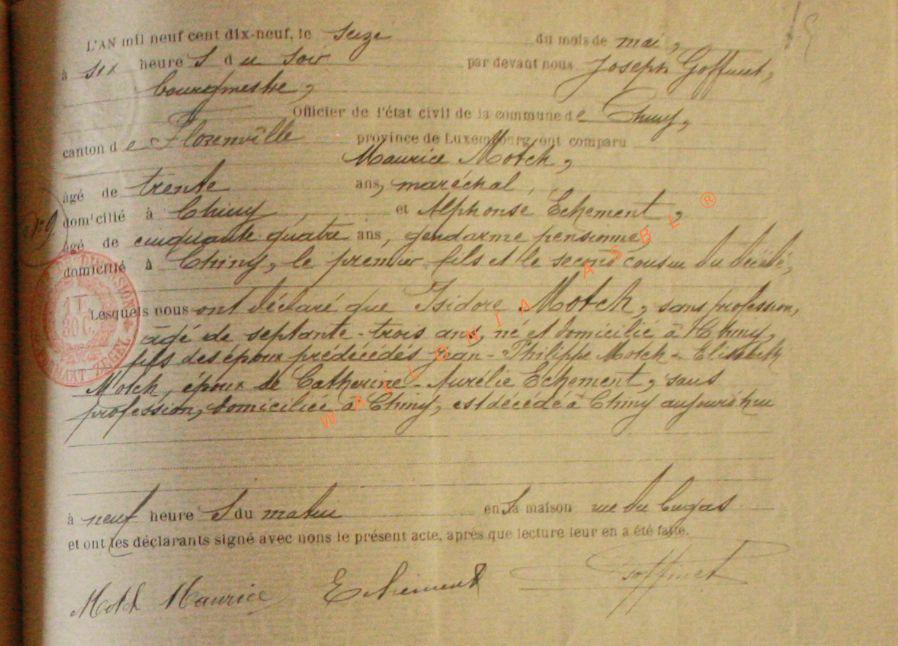 L'AN mil neuf cent dix-neuf, le seize du mois de mai,
à six heure s du soir par devant nous Joseph Goffinet,
bourgmestre,
Officier de l'état civil de la commune de Chiny,
canton de Florenville province de Luxembourg, ont comparu
Maurice Motch,
âgé de trente ans, maréchal,
domicilié à Chiny et Alphonse Echement,
N° 9
âgé de cinquante quatre ans, gendarme pensionné
domicilié à Chiny, le premier fils et le second cousin du décédé,
Lesquels nous ont déclaré que Isidore Motch, sans profession,
âgé de septante-trois ans né et domicilié à Chiny,
fils des époux prédécédés Jean-Philippe Motch-Elisabeth
Motch, époux de Catherine-Aurélie Echement, sans
profession, domiciliée à Chiny, est décédé à Chiny aujourd'hui
à neuf heure s du matin en sa maison rue du
et ont les déclarants signé avec nous le présent acte, après que lecture leur en a été faite.
Motch Maurice Echement Goffinet